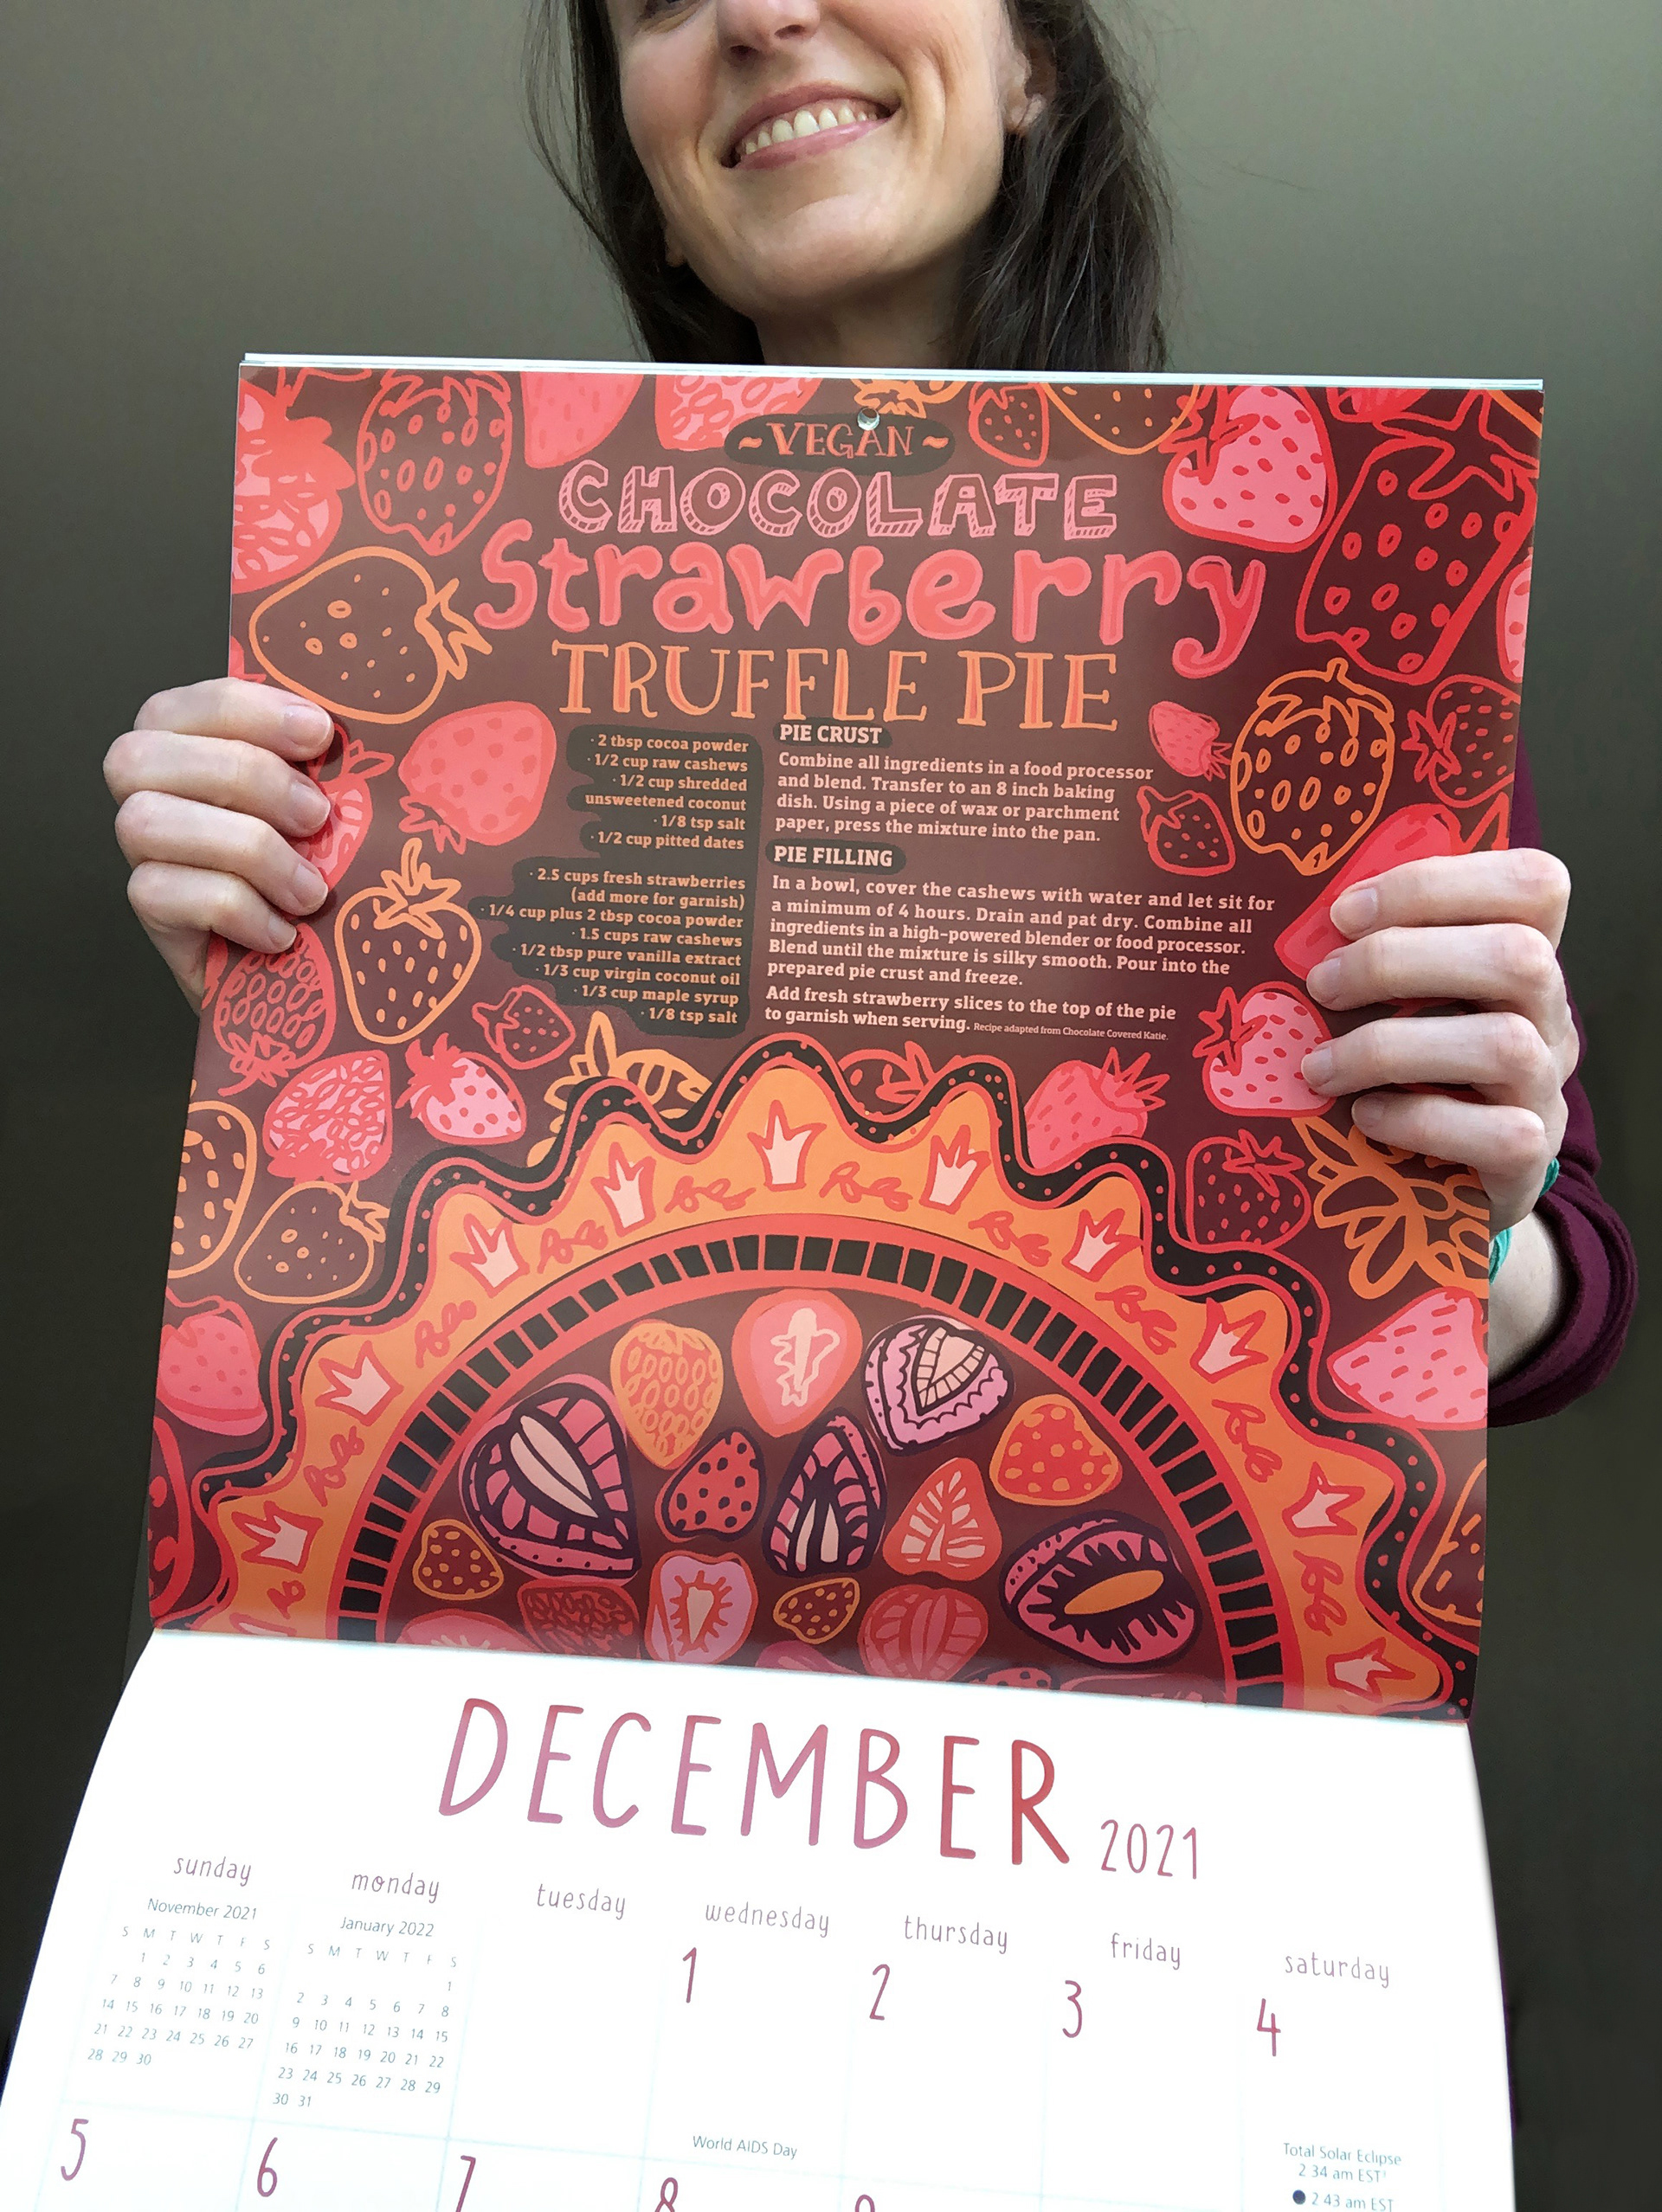 ~VEGAN~
CHOCOLATE
Strawberry
TRUFFLE PIE
· 2 tbsp cocoa powder
· 1/2 cup raw cashews
· 1/2 cup shredded
unsweetened coconut
· 1/8 tsp salt
· 1/2 cup pitted dates
· 2.5 cups fresh strawberries
(add more for garnish)
· 1/4 cup plus 2 tbsp cocoa powder
· 1.5 cups raw cashews
· 1/2 tbsp pure vanilla extract
· 1/3 cup virgin coconut oil
· 1/3 cup maple syrup
· 1/8 tsp salt
PIE CRUST
Combine all ingredients in a food processor
and blend. Transfer to an 8 inch baking
dish. Using a piece of wax or parchment
paper, press the mixture into the pan.
PIE FILLING
In a bowl, cover the cashews with water and let sit for
a minimum of 4 hours. Drain and pat dry. Combine all
ingredients in a high-powered blender or food processor.
Blend until the mixture is silky smooth. Pour into the
prepared pie crust and freeze.
Add fresh strawberry slices to the top of the pie
to garnish when serving. Recipe adapted from Chocolate Covered Katie.
DECEMBER 2021
sunday monday tuesday wednesday thursday friday saturday
November 2021
S M T W T F S
1 2 3 4 5 6
7 8 9 10 11 12 13
14 15 16 17 18 19 20
21 22 23 24 25 26 27
28 29 30
January 2022
S M T W T F S
1
2 3 4 5 6 7 8
9 10 11 12 13 14 15
16 17 18 19 20 21 22
23 24 25 26 27 28 29
30 31
1 2 3 4
World AIDS Day
Total Solar Eclipse
2 34 am EST
2 43 am EST
5 6 7 8 9